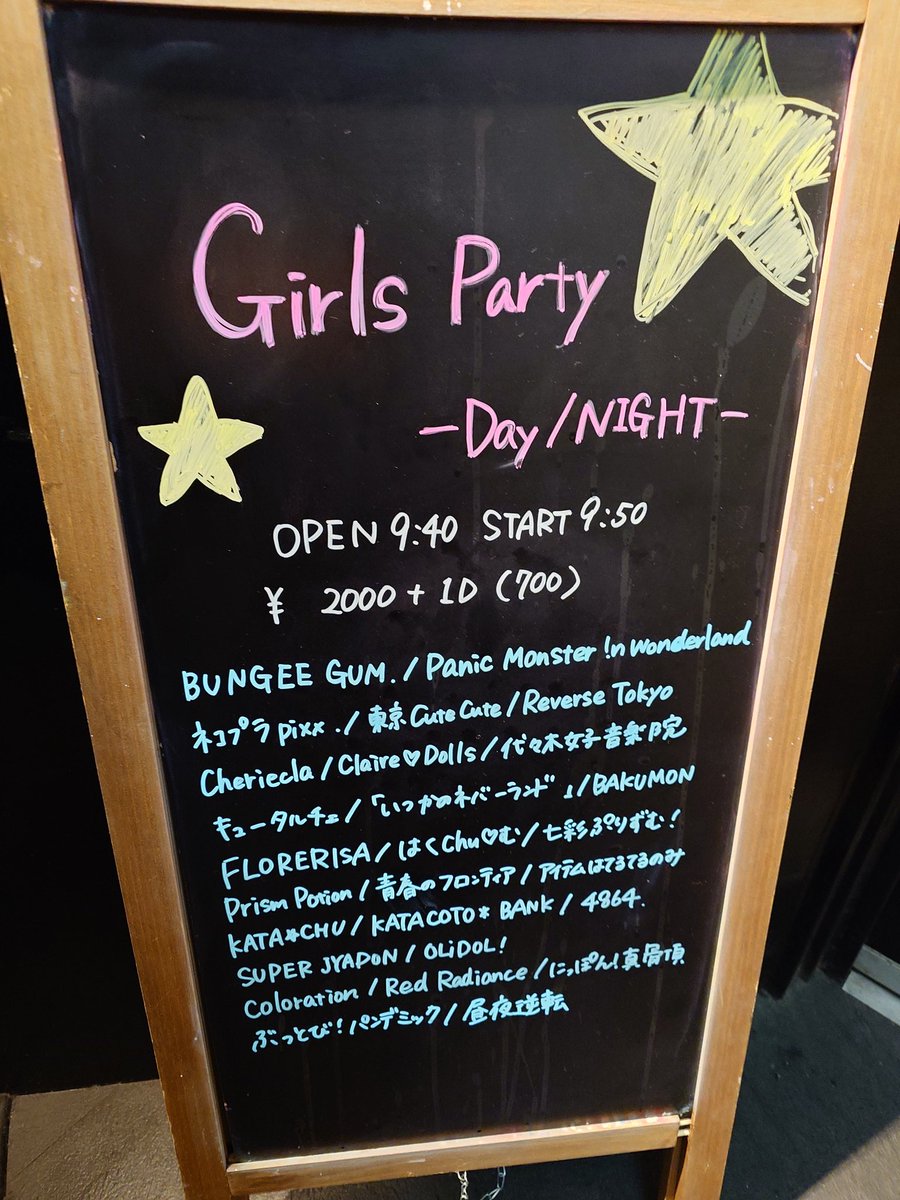 Girls Party
-Day/NIGHT-
OPEN 9:40 START 9:50
¥ 2000 + 1D (700)
BUNGEE GUM./Panic Monster !n wonderland
ネコプラpixx./東京CuteCute/Reverse Tokyo
Cheriecla/Claire♡Dolls/代々木女子音楽院
キュータルチェ/「いつかのネバーランド」/BAKUMON
FLORERISA/はくChu♡む/七彩ぷりずむ!
Prism Potion/青春のフロンティア/アイテムはてるてるのみ
KATA*CHU/KATACOTO*BANK/4864.
SUPER JYADON/OLiDOL!
Coloration/Red Radiance/にっぽん!真骨頂
ぶっとび!パンデミック/昼夜逆転